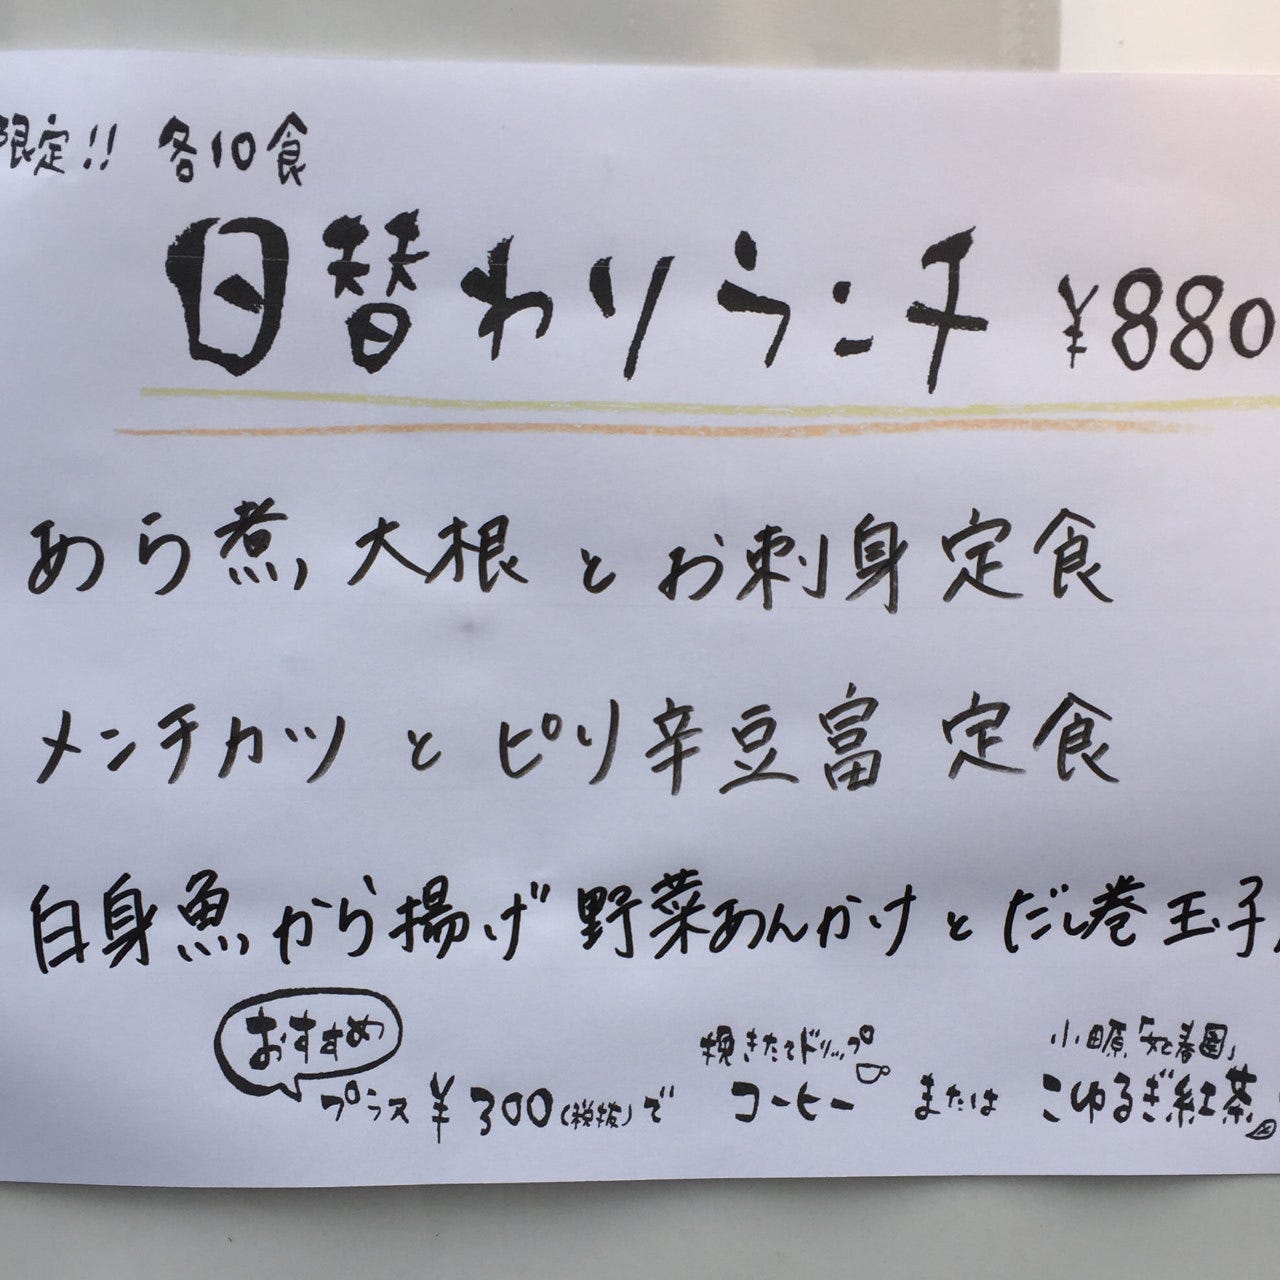 限定!! 各10食
日替わりランチ ¥880
あら煮大根とお刺身定食
メンチカツとピリ辛豆富定食
白身魚から揚げ野菜あんかけとだし巻玉子
おすすめ
挽きたてドリップ
小田原「如春園」
プラス¥300(税抜)で コーヒー または こゆるぎ紅茶